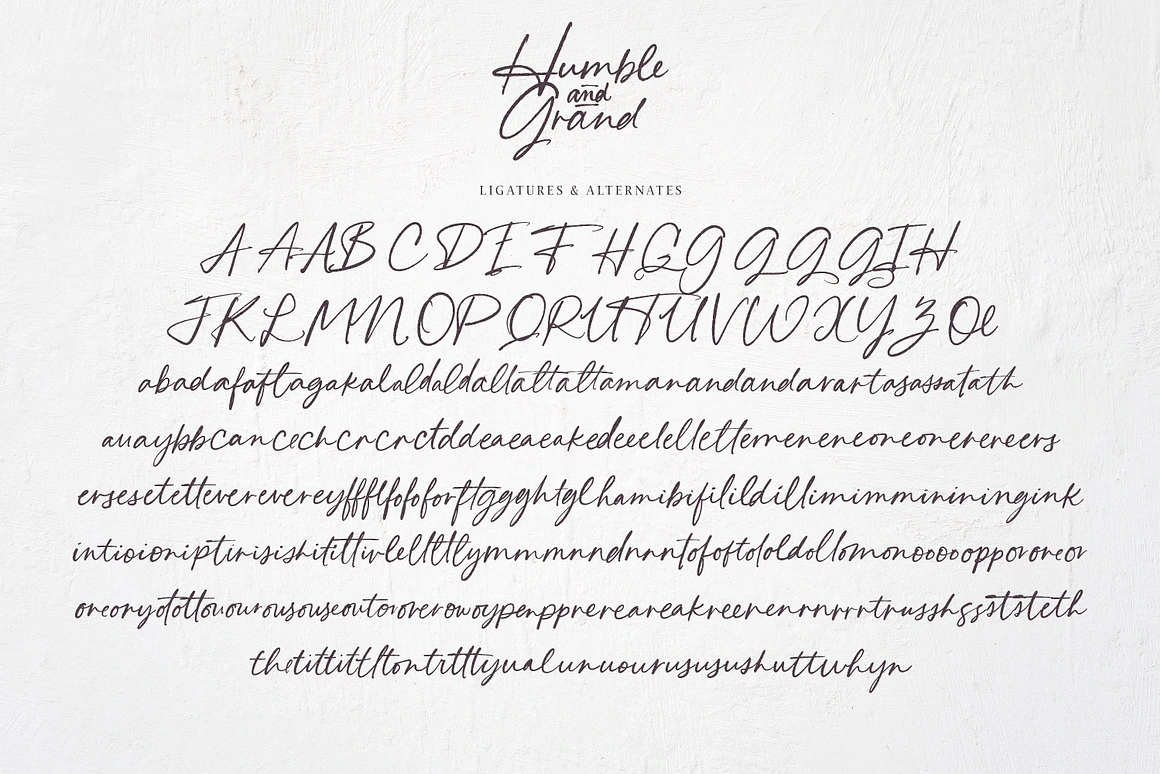 Humble
and
Grand
LIGATURES & ALTERNATES
A A A B C D E F H G G G G G I H
J K L M N O P Q R U T U V W X Y Z Oe
abadafoftagakalaldaldallattattamanandandavartasassatath
auaybbcancechcrcrctddeaeaeakedeeelellettemeneneoneonereneers
ersesetetteverevereyffflfofoforftggghtglhamibifilildillimimmininingink
intioioniptirisishitittivlelltltlymmmnndnrntofoftololdollomonoooooppororeor
oreoryotottouourousouseoutoroverowoypenpprereareakreenenrnrrrrtrusshgsststeth
thetittittltontritttyualunuourusususshuttwhyn